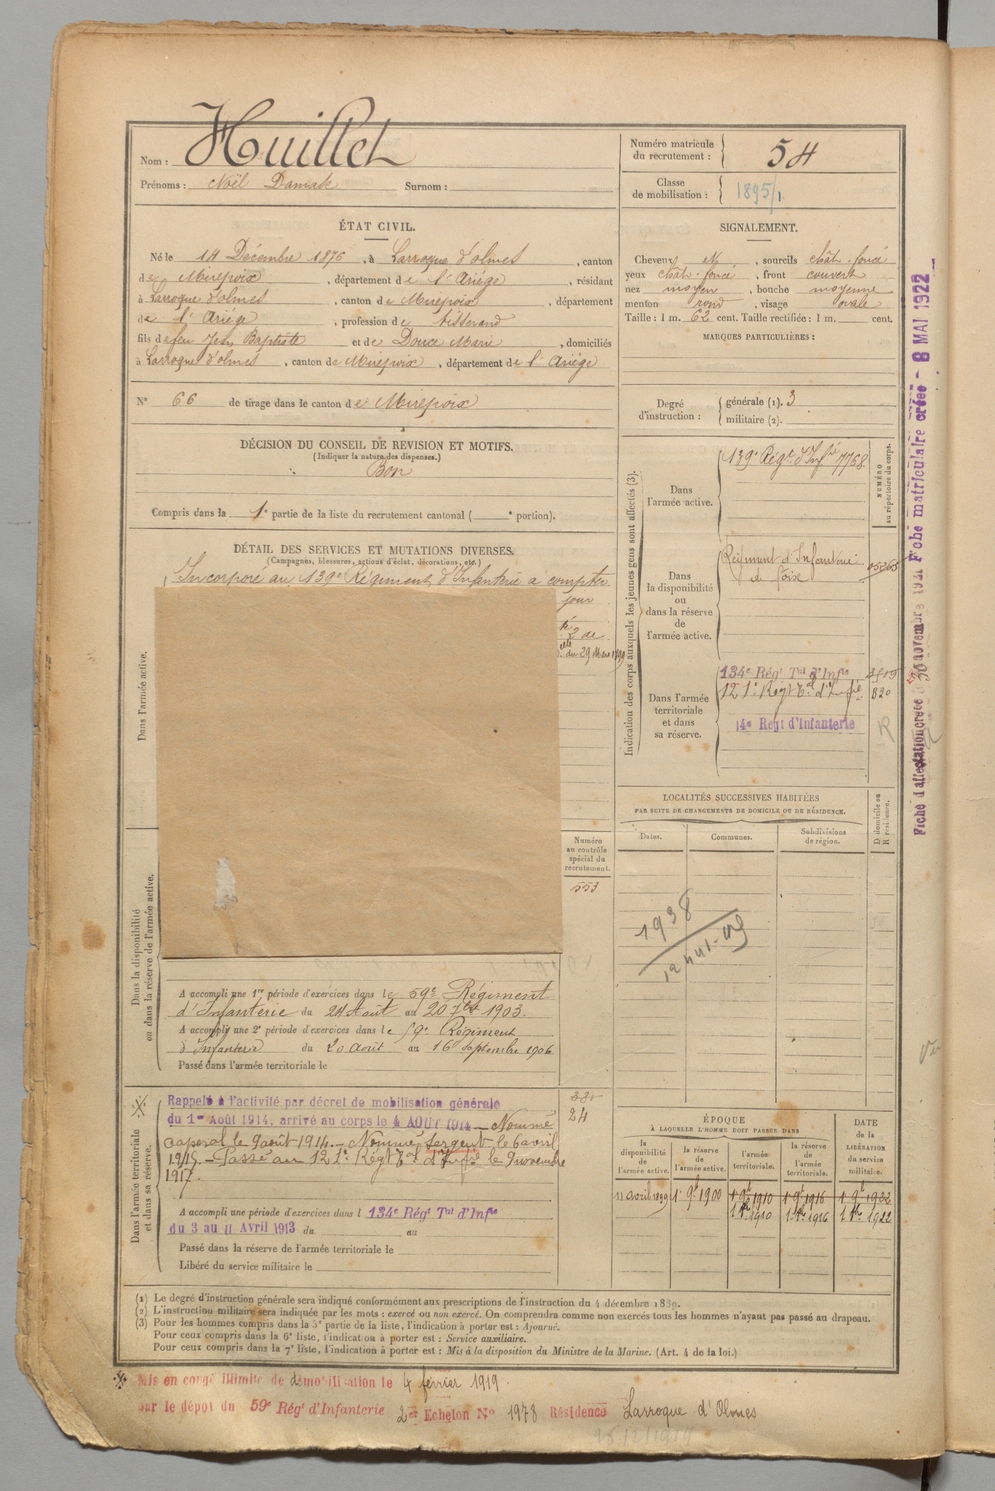 Nom : Huillet
Prénoms : Noël Surnom :
Numéro matricule
du recrutement : 54
Classe
de mobilisation : 1895/1
ÉTAT CIVIL.
Né le 14 Décembre 1876, à Larroque d'olmes, canton
de Mirepoix, département de l'Ariège, résidant
à Larroque d'olmes, canton de Mirepoix, département
de l'Ariège, profession de tisserand
fils de feu Jean Baptiste et de Douce Marie, domiciliés
à Larroque d'olmes, canton de Mirepoix, département de l'Ariège
N° 66 de tirage dans le canton de Mirepoix
SIGNALEMENT.
Cheveux N, sourcils chât. foncé
yeux chât. foncé, front couvert
nez moyen, bouche moyenne
menton rond, visage ovale
Taille : 1 m. 62 cent. Taille rectifiée : 1 m. cent.
MARQUES PARTICULIÈRES :
Degré
d'instruction :
générale (1). 3
militaire (2).
DÉCISION DU CONSEIL DE REVISION ET MOTIFS.
(Indiquer la nature des dispenses.)
Bon
Compris dans la 1e partie de la liste du recrutement cantonal ( e portion).
DÉTAIL DES SERVICES ET MUTATIONS DIVERSES.
(Campagnes, blessures, actions d'éclat, décorations, etc.)
Incorporé au 139e Régiment d'Infanterie à compter
jour
2 de
du 29 Mars
Dans l'armée active.
Dans la disponibilité
ou dans la réserve de l'armée active.
Numéro
au contrôle
spécial du
recrutement.
553
A accompli une 1re période d'exercices dans le 59e Régiment
d'Infanterie du 24 Août au 20 7bre 1903.
A accompli une 2e période d'exercices dans le 59e Régiment
d'Infanterie du 20 août au 16 septembre 1906
Passé dans l'armée territoriale le
Dans l'armée territoriale
et dans sa réserve.
Rappelé à l'activité par décret de mobilisation générale
du 1er Août 1914, arrivé au corps le 4 AOUT 1914 _ Nommé
caporal le 9 août 1914. _ Nommé sergent le 6 avril
1915. _ Passé au 121e Régt Tal d'Infie le 9 novembre
1917.
24
A accompli une période d'exercices dans l 134e Régt Tal d'Infie
du 3 au 11 Avril 1913 du au
Passé dans la réserve de l'armée territoriale le
Libéré du service militaire le
Indication des corps auxquels les jeunes gens sont affectés (3).
NUMÉRO
au répertoire du corps.
Dans
l'armée active.
139e Régt d'Infie 7768
Dans
la disponibilité
ou
dans la réserve
de
l'armée active.
Régiment d'Infanterie
de Foix
Dans l'armée
territoriale
et dans
sa réserve.
134e Régt Tal d'Infie
121e Régt Tal d'Infie 820
14e Regt d'Infanterie
R
LOCALITÉS SUCCESSIVES HABITÉES
PAR SUITE DE CHANGEMENTS DE DOMICILE OU DE RÉSIDENCE.
D domicile ou
R résidence.
Dates. Communes. Subdivisions
de région.
1938
ÉPOQUE
À LAQUELLE L'HOMME DOIT PASSER DANS
la
disponibilité
de
l'armée active.
la réserve
de
l'armée active.
l'armée
territoriale.
la réserve
de
l'armée
territoriale.
DATE
de la
LIBÉRATION
du service
militaire.
11 avril 1899 1er 9bre 1900 1er 9bre 1910 1er 9bre 1916 1er 9bre 1922
1 1910 1 1916 1 1922
(1) Le degré d'instruction générale sera indiqué conformément aux prescriptions de l'instruction du 4 décembre 1889.
(2) L'instruction militaire sera indiquée par les mots : exercé ou non exercé. On comprendra comme non exercés tous les hommes n'ayant pas passé au drapeau.
(3) Pour les hommes compris dans la 5e partie de la liste, l'indication à porter est : Ajourné.
Pour ceux compris dans la 6e liste, l'indication à porter est : Service auxiliaire.
Pour ceux compris dans la 7e liste, l'indication à porter est : Mis à la disposition du Ministre de la Marine. (Art. 4 de la loi.)
Mis en congé illimité de démobilisation le 4 février 1919.
par le dépôt du 59e Régt d'Infanterie 2e Echelon N° 1978 Résidence Larroque d'Olmes
Fiche d'affectation créée 20 novembre 1921 Fiche matriculaire créée - 8 MAI 1922